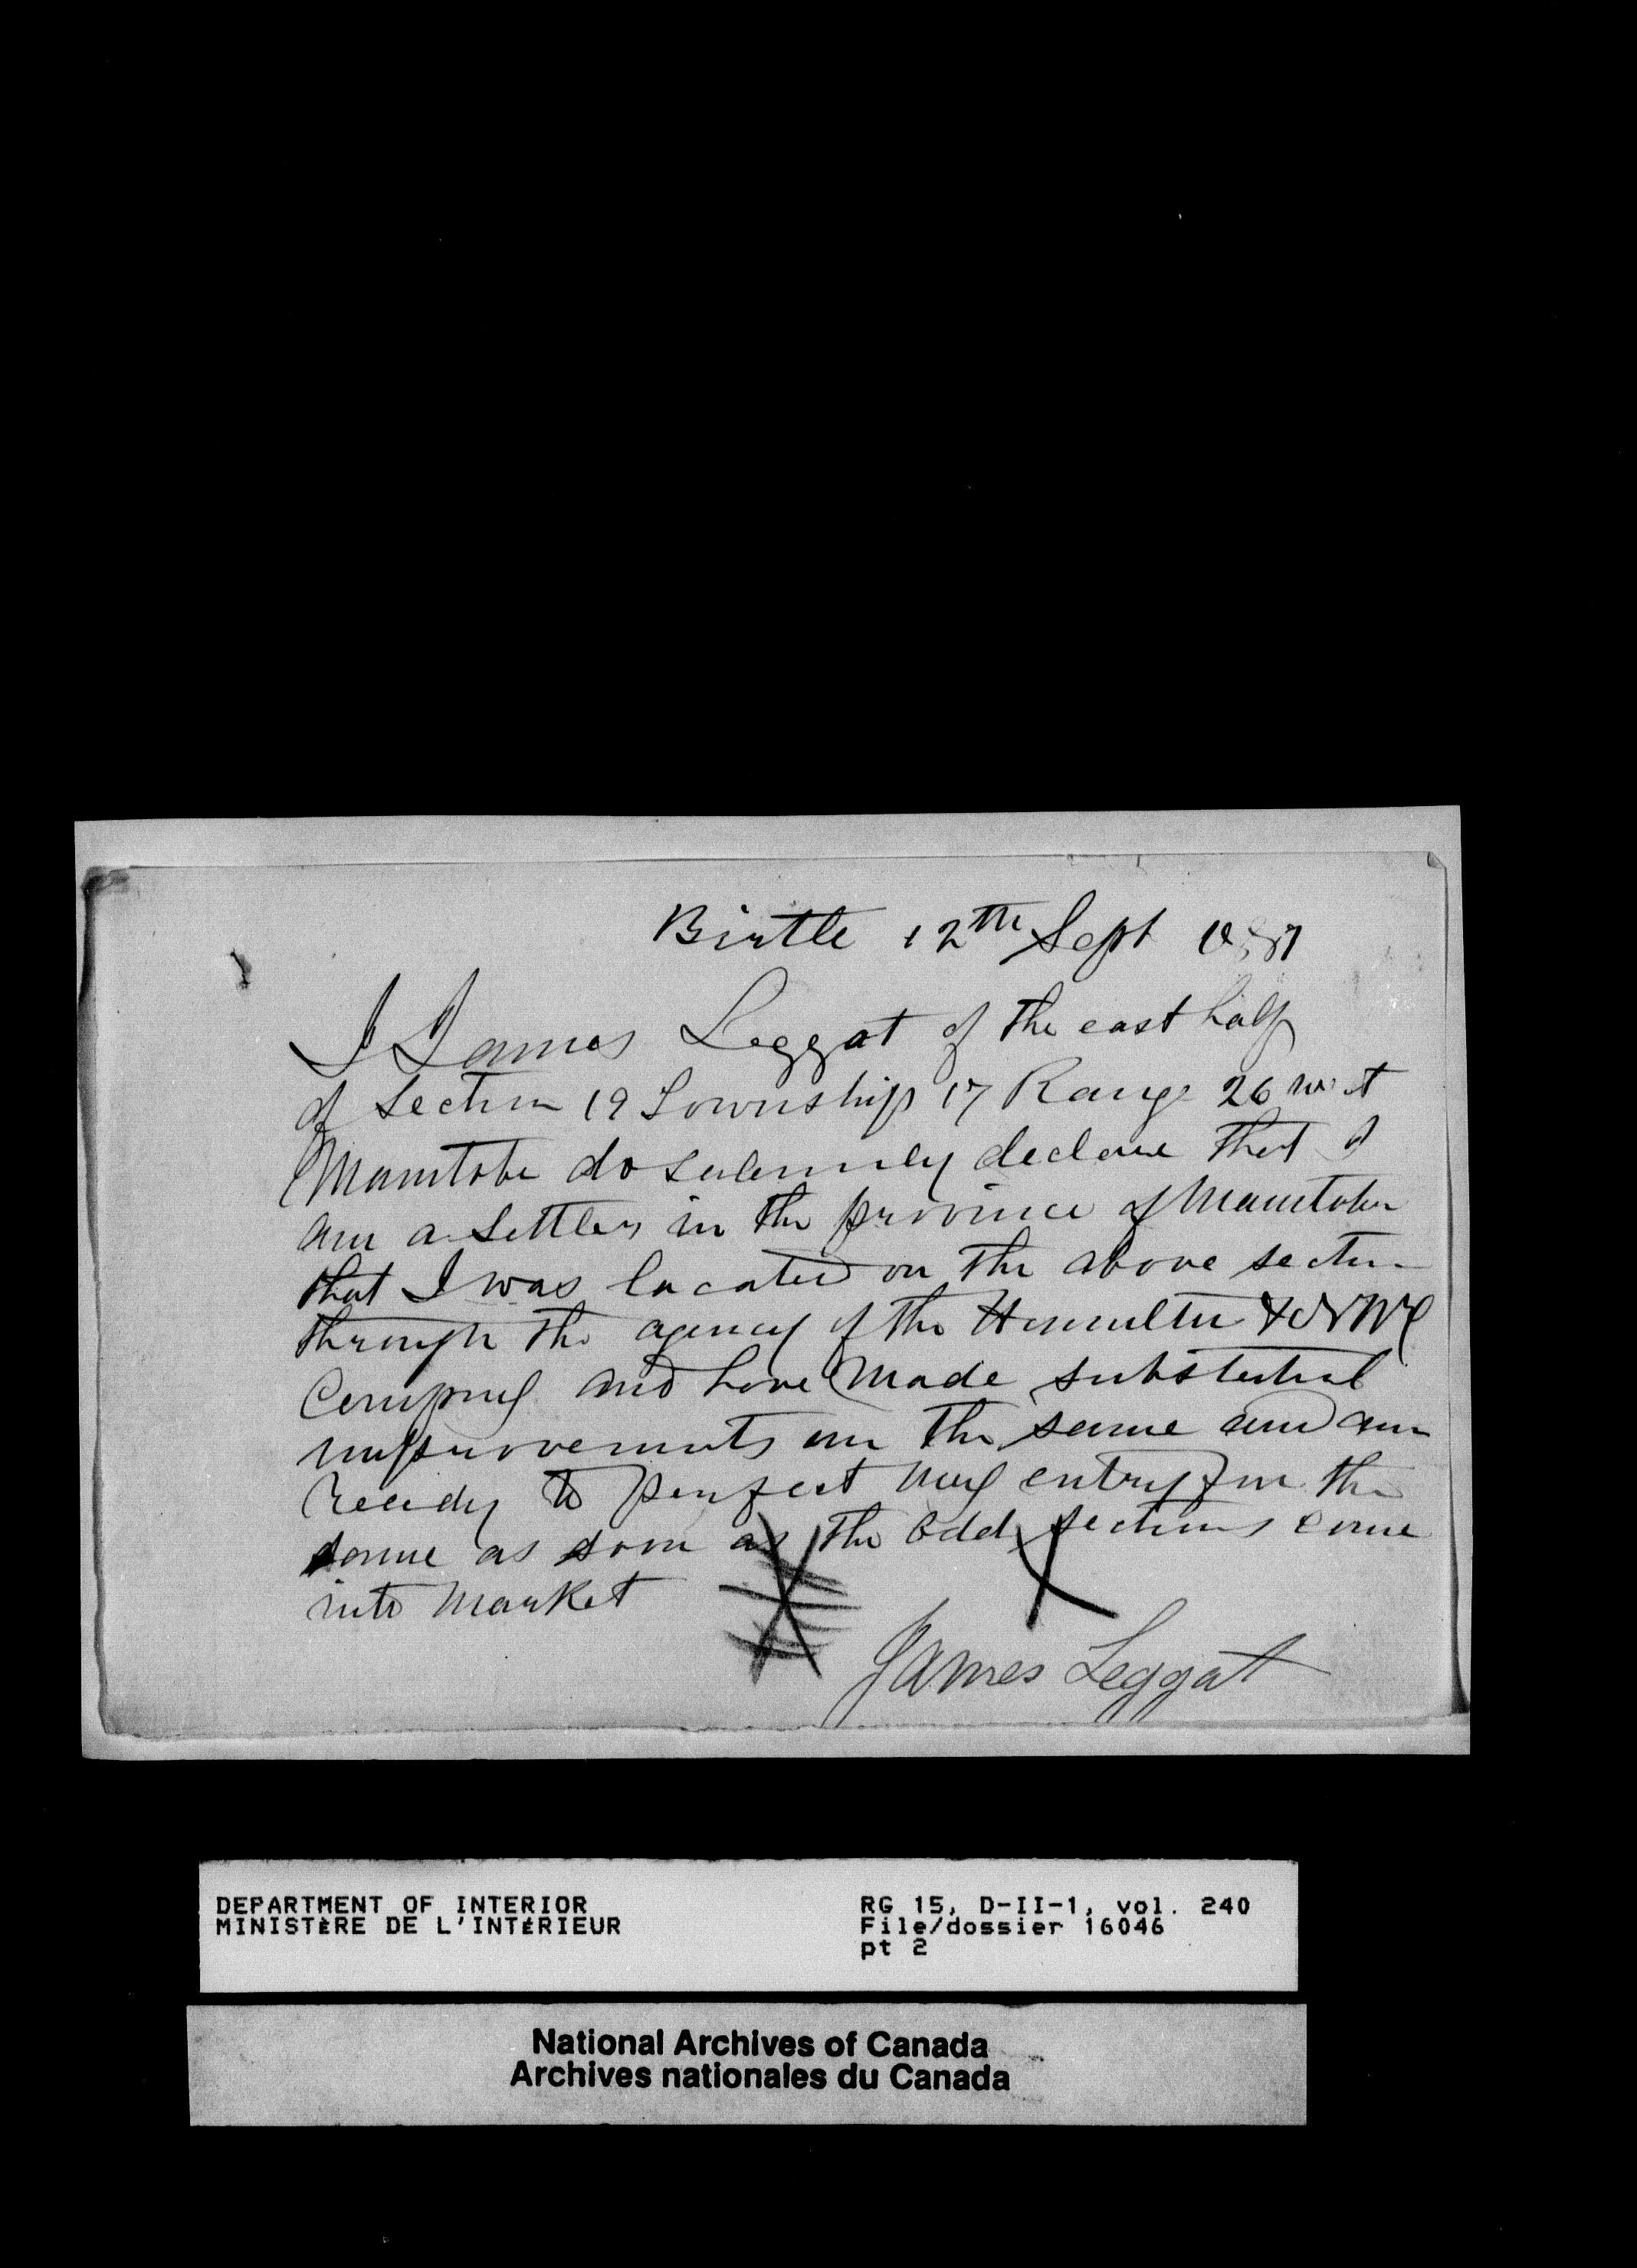 Birtle 12th Sept 1881
I James Leggat of the east half
of Section 19 Township 17 Range 26 west
Manitoba do solemnly declare that I
am a settler in the province of Manitoba
that I was located on the above section
through the agency of the Hamilton & NW
Company and have made substantial
improvements on the same and am
ready to perfect my entry for the
same as soon as the odd sections come
into market
James Leggat
DEPARTMENT OF INTERIOR
MINISTÈRE DE L'INTÉRIEUR
RG 15, D-II-1, vol. 240
File/dossier 16046
pt 2
National Archives of Canada
Archives nationales du Canada